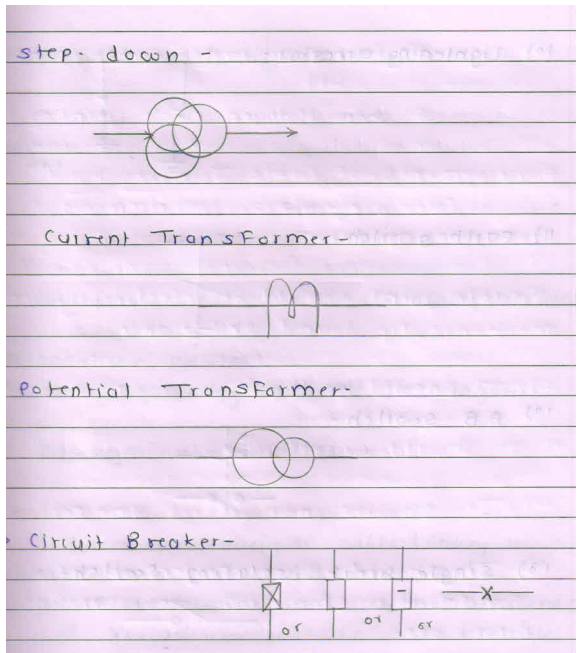 step. down -
Current Transformer-
Potential Transformer-
Circuit Breaker-
or or or